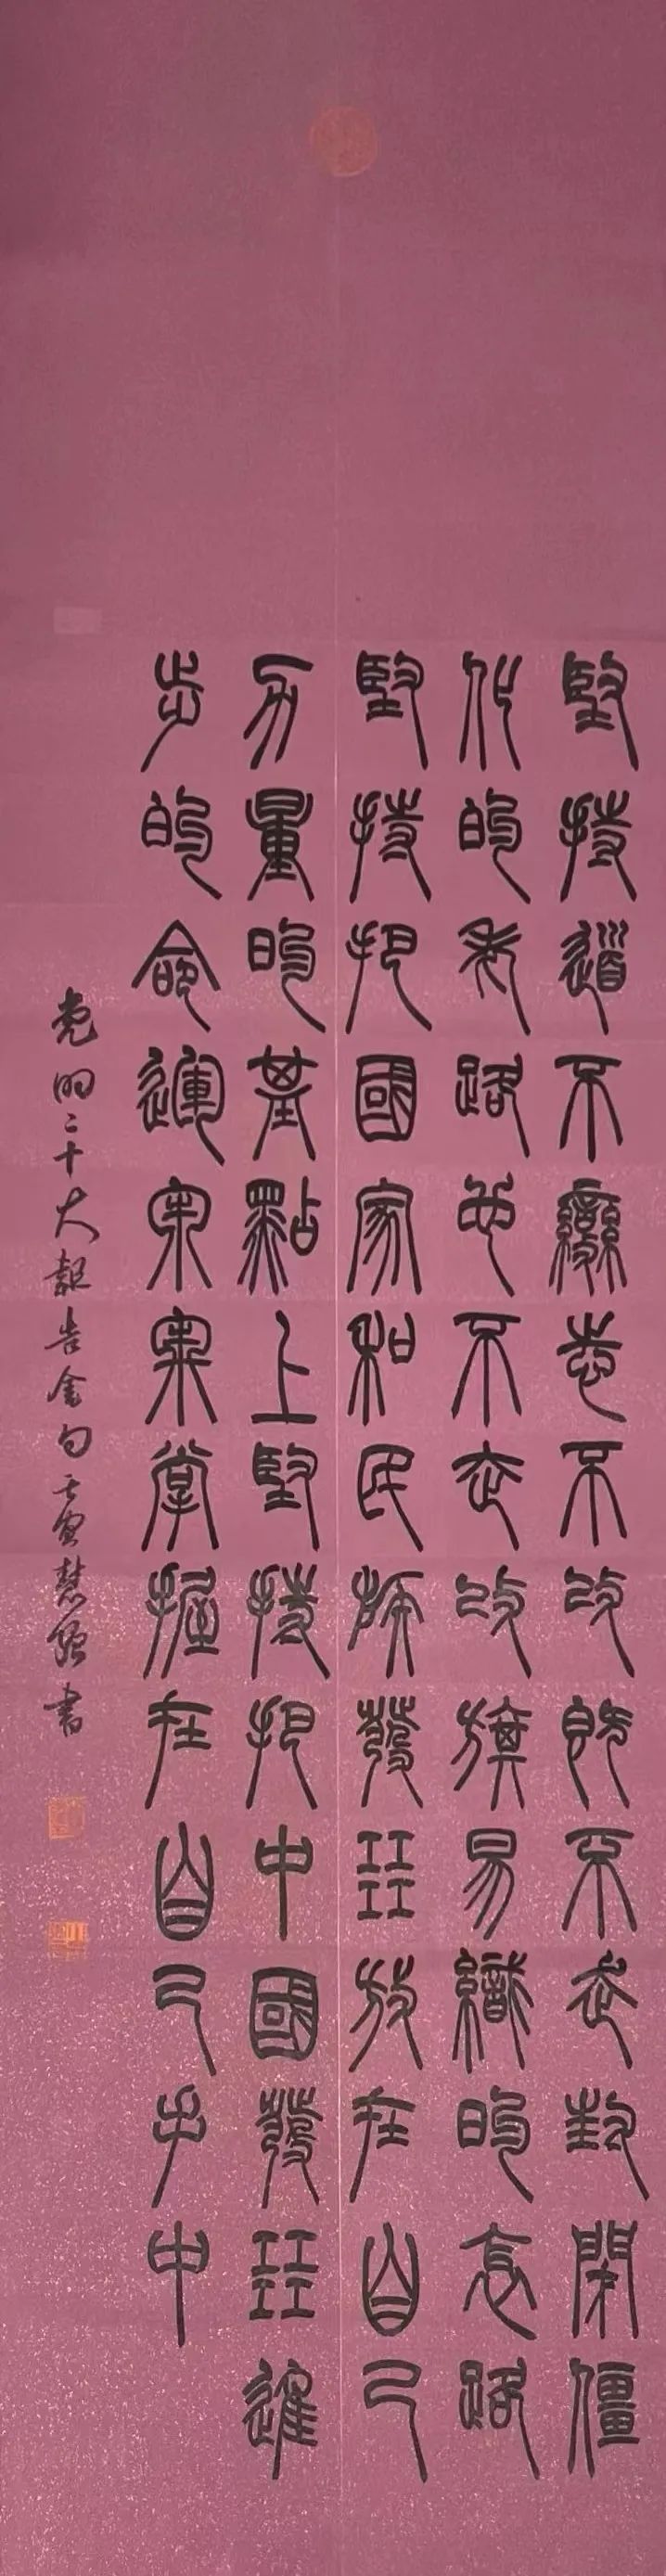 堅持道不變志不改既不走封閉僵
化的老路也不走改旗易織旳衺路
堅持把國家和民族發㠭放在自己
力量旳基點上堅持把中國發㠭進
步的命運牢牢掌握在自己手中
党的二十大報告金句壬寅慧書